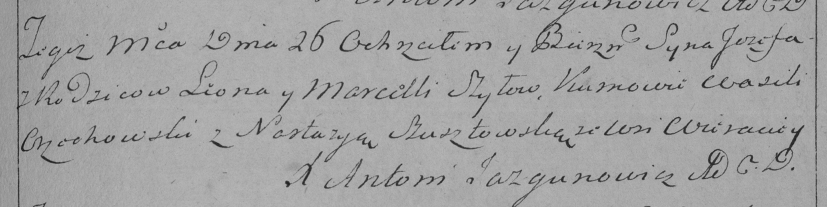 Tegoż Mca Dnia 26 Ochrzciłem y Bierzm Syna Jozefa
z Rodzicow Leona y Marcelli Szyłow, Kumowie Wasili
Czechowski z Nastazyą ze Wsi
X Antoni Jazgunowicz AD C. D.